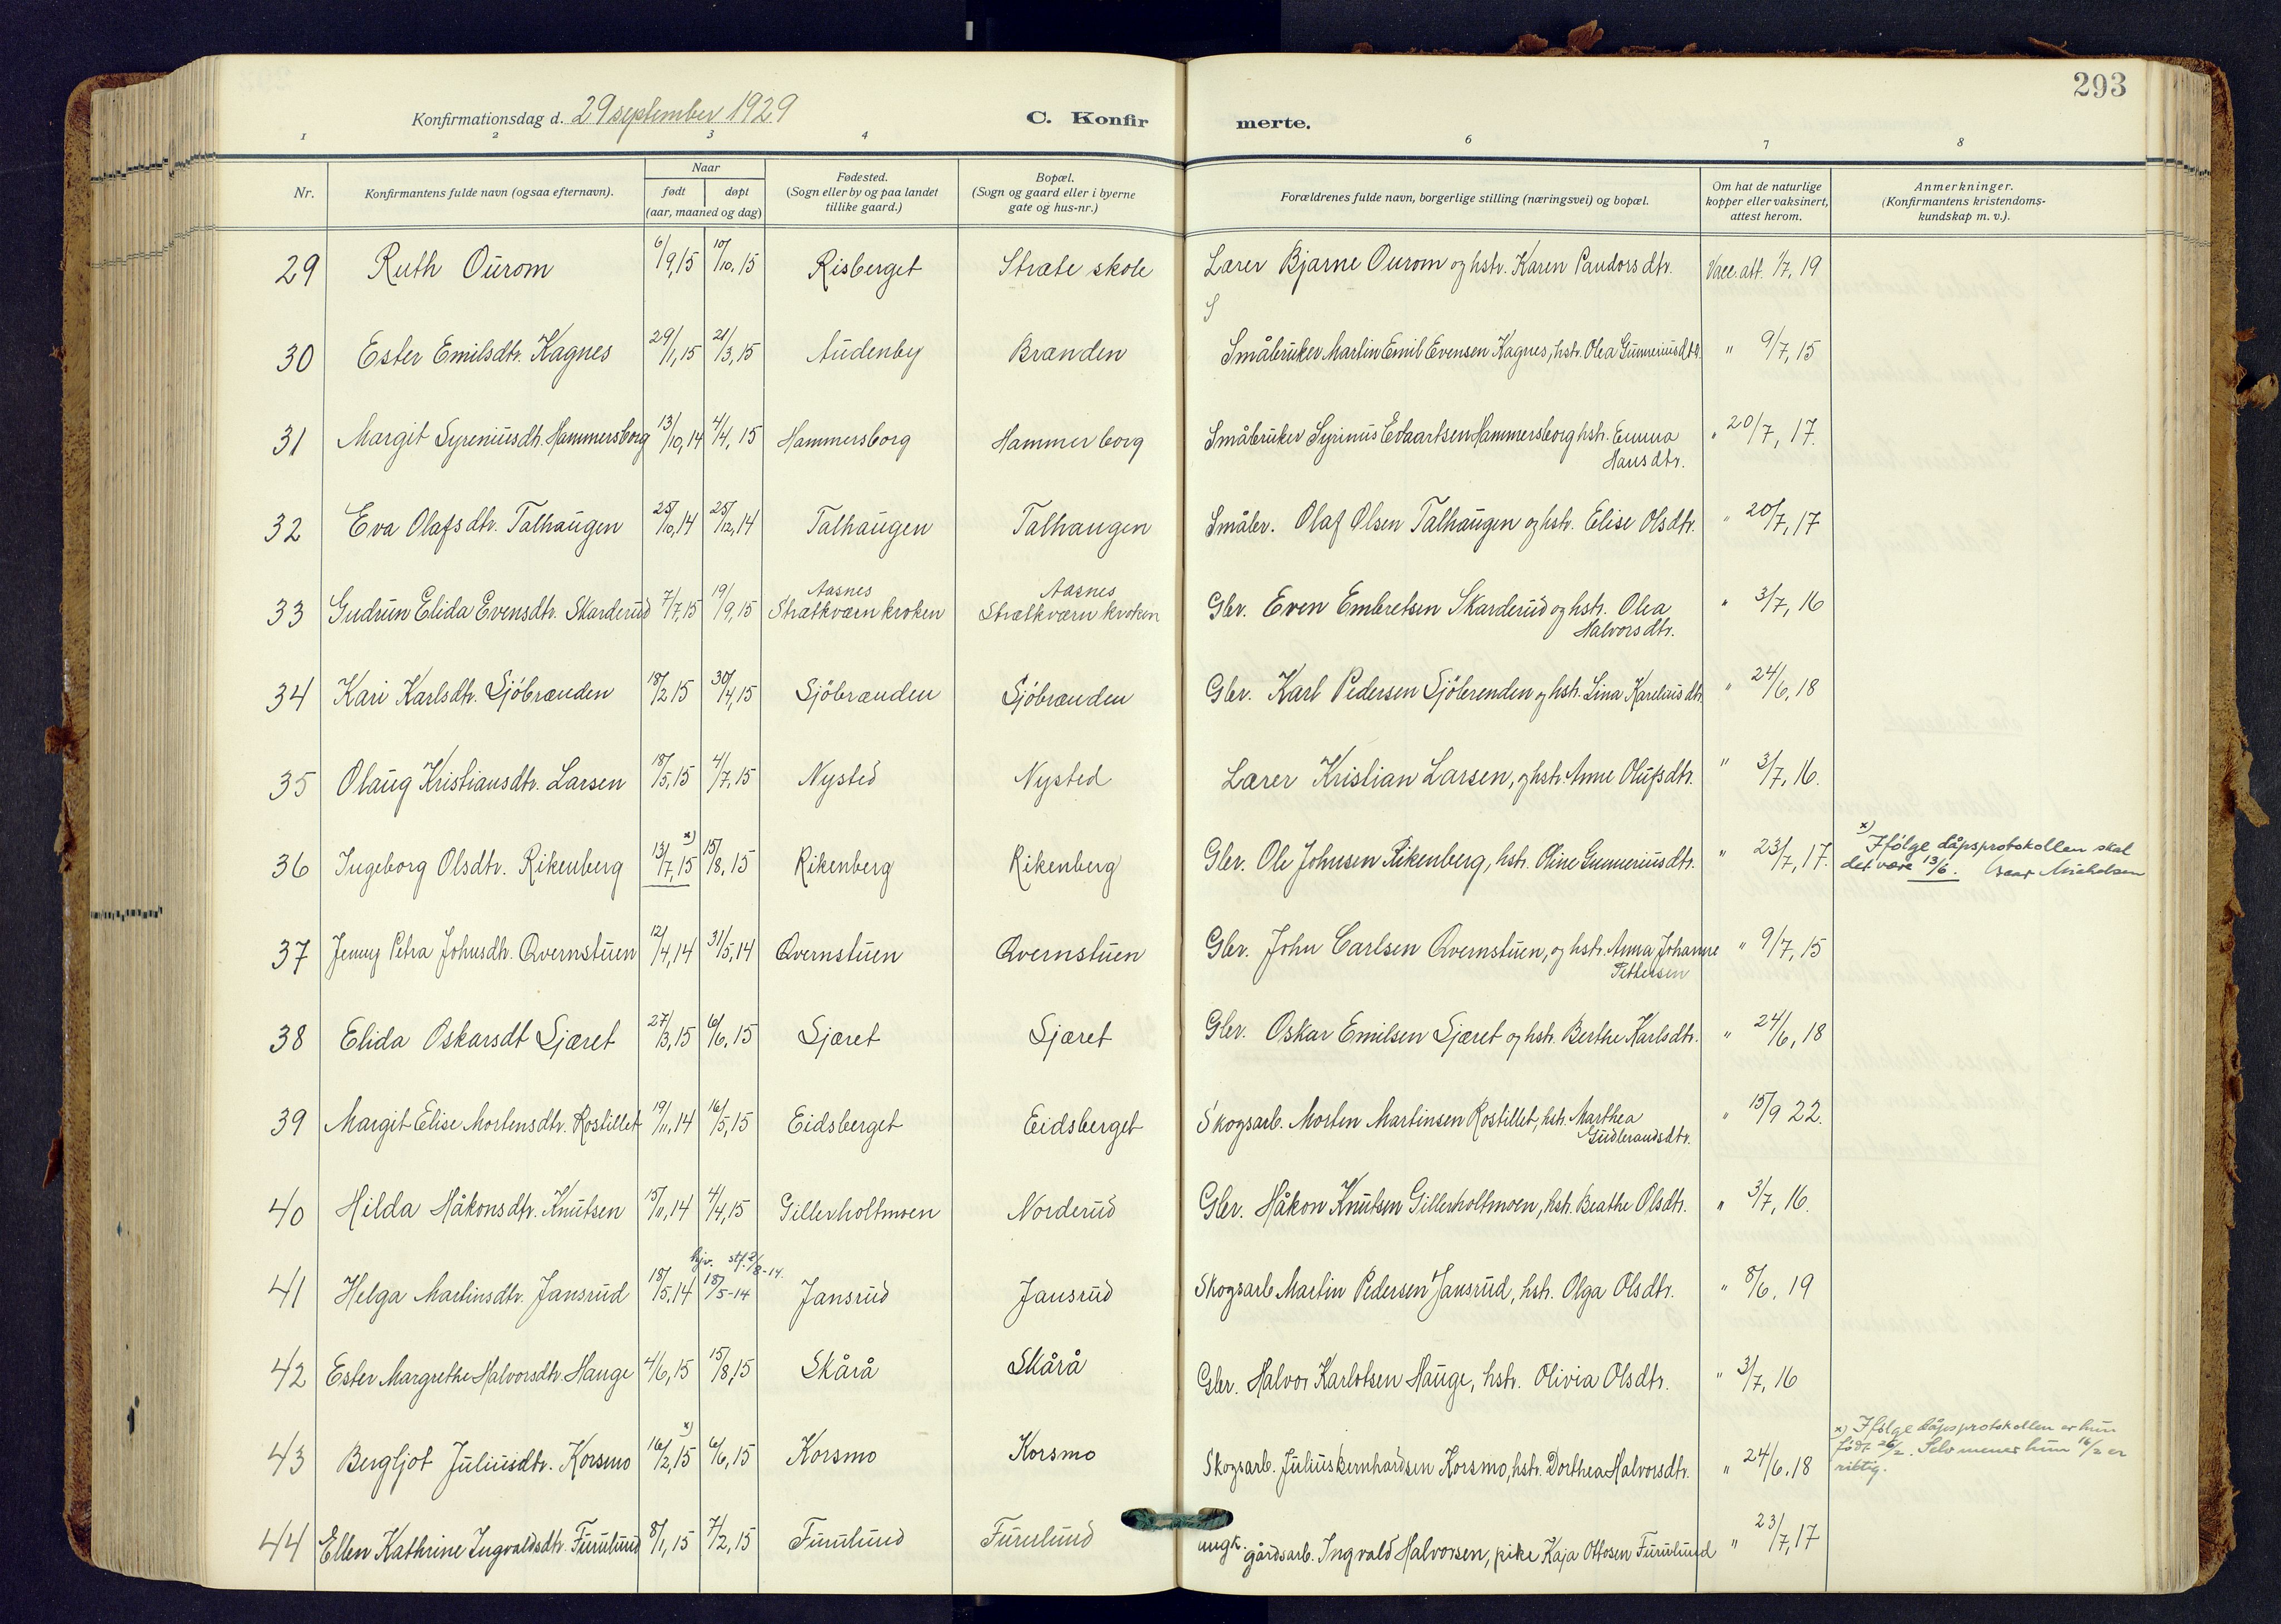 293
Konfirmationsdag d. 29 september 1929
C. Konfirmerte.
1 2 3 4 6 7 8
Nr.
Konfirmantens fulde navn (ogsaa efternavn).
Naar
født døpt
(aar, maaned og dag)
Fødested.
(Sogn eller by og paa landet
tillike gaard.)
Bopæl.
(Sogn og gaard eller i byerne
gate og hus-nr.)
Forældrenes fulde navn, borgerlige stilling (næringsvei) og bopæl.
Om hat de naturlige
kopper eller vaksinert,
attest herom.
Anmerkninger.
(Konfirmantens kristendoms-
kundskap m. v.).
29 Ruth Ourom 6/9,15 10/10,15 Risberget Stræte skole Lærer Bjarne Ourom og hstr. Karen Pandorsdtr. Vacc. att. 1/7, 19
30 Ester Emilsdtr. Kagnes 29/1,15 21/3,15 Audenby Brænden Småbruker Martin Emil Evensen Kagnes, hstr. Olea Gunneriusdtr. " 9/7, 15
31 Margit Syreniusdtr. Hammersborg 13/10,14 4/4,15 Hammersborg Hammerborg Småbruker Syrinus Edvartsen Hammersborg hstr. Emma
Hansdtr. " 20/7, 17.
32 Eva Olafsdtr. Talhaugen 25/10,14 25/12,14 Talhaugen Talhaugen Småbr. Olaf Olsen Talhaugen og hstr. Elise Olsdtr. " 20/7, 17
33 Gudrun Elida Evensdtr. Skarderud 7/7,15 19/9,15 Aasnes Strætkværnkroken Aasnes Strætkværnkroken Gbr. Even Embretsen Skarderud og hstr. Olea
Halvorsdtr. " 3/7, 16
34 Kari Karlsdtr. Sjöbrænden 18/2,15 30/4,15 Sjöbrænden Sjöbrænden Gbr. Karl Pedersen Sjöbrenden og hstr. Lina Kareliusdtr. " 24/6, 18
35 Olaug Kristiansdtr. Larsen 18/5,15 4/7,15 Nysted Nysted Lærer Kristian Larsen, og hstr. Anne Olufsdtr. " 3/7, 16.
36 Ingeborg Olsdtr. Rikenberg 13/7,15 x) 15/8,15 Rikenberg Rikenberg Gbr. Ole Johnsen Rikenberg, hstr. Oline Gunneriusdtr. " 23/7, 17.
x) Ifølge dåpsprotokollen skal
det være 13/6. Michelsen
37 Jenny Petra Johnsdtr. Qvernstuen 12/4,14 31/5,14 Qvernstuen Qvernstuen Gbr. John Carlsen Qvernstuen, og hstr. Anna Johanne
Pettersen " 9/7, 15
38 Elida Oskarsdt Sjæret 27/3,15 6/6,15 Sjæret Sjæret Gbr. Oskar Emilsen Sjæret og hstr. Berthe Karlsdtr. " 24/6, 18
39 Margit Elise Mortensdtr. Rostillet 19/11,14 16/5,15 Eidsberget Eidsberget Skogsarb. Morten Martinsen Rostillet, hstr. Marthea
Gudbrandsdtr. " 15/9 22.
40 Hilda Håkonsdtr. Knutsen 15/11,14 4/4,15 Gillerholtmoen Norderud Gbr. Håkon Knutsen Gillerholtmoen, hstr. Beathe Olsdtr. " 3/7, 16.
41 Helga Martinsdtr. Jansrud 18/5,14 hjv. 18/5-14 stf. 2/8-14. Jansrud Jansrud Skogsarb Martin Pedersen Jansrud, hstr. Olga Olsdtr. " 8/6, 19
42 Ester Margrethe Halvorsdtr. Hauge 4/6,15 15/8,15 Skårå Skårå Gbr. Halvor Karlotsen Hauge, hstr. Olivia Olsdtr. " 3/7, 16
43 Bergljot Juliusdtr. Korsmo 16/2,15 x) 6/6,15 Korsmo Korsmo Skogsarb. Julius Bernhardsen Korsmo, hstr. Dorthea Halvorsdtr. " 24/6, 18
x) Ifølge dåpsprotokollen er hun
født 26/2. Selv mener hun 16/2 er
riktig.
44 Ellen Kathrine Ingvaldsdtr. Furulund 8/1,15 7/2,15 Furulund Furulund ungk. gårdsarb. Ingvald Halvorsen, pike Kaja Ottosen Furulund " 23/7, 17